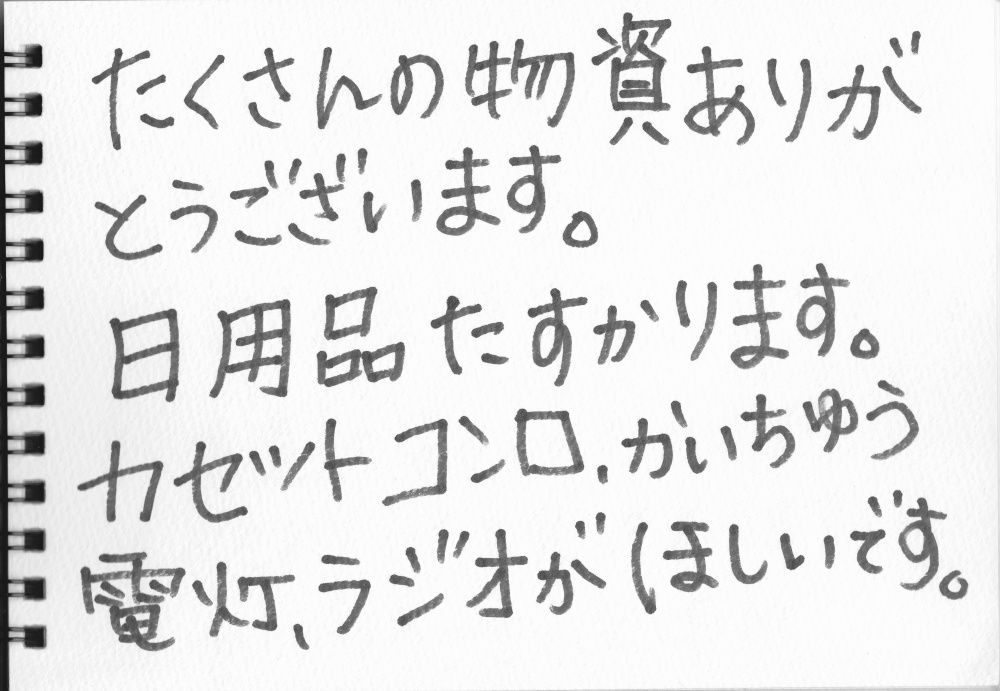 たくさんの物資ありが
とうございます。
日用品たすかります。
カセットコンロ、かいちゅう
電灯、ラジオがほしいです。